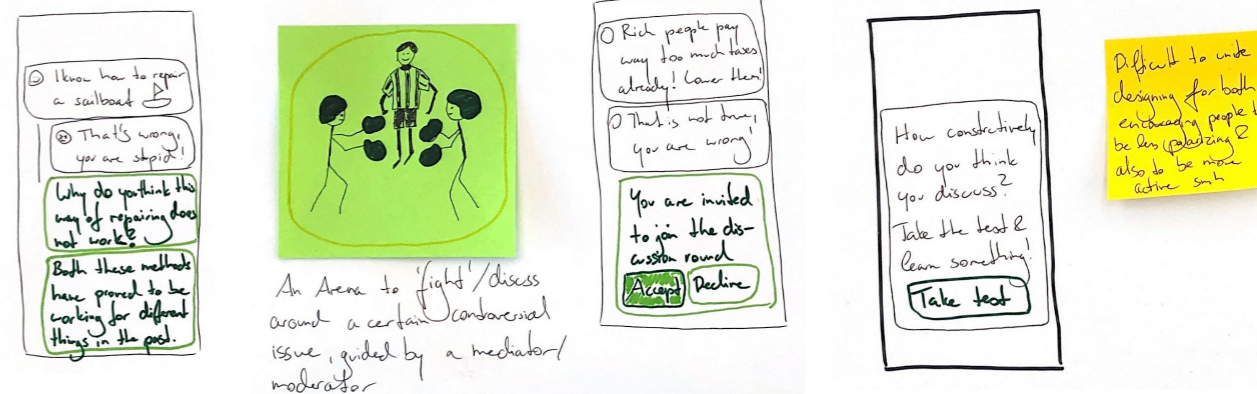 I know how to repair
a sailboat
That's wrong,
you are stupid!
Why do you think this
way of repairing does
not work?
Both these methods
have proved to be
working for different
things in the past.
An Arena to 'fight'/discuss
around a certain controversial
issue, guided by a mediator/
moderator
Rich people pay
way too much taxes
already! Lower them!
That is not true,
you are wrong!
You are invited
to join the dis-
cussion round
Accept Decline
How constructively
do you think
you discuss?
Take the test &
learn something!
Take test
Difficult to unite
designing for both
encouraging people t
be less polarizing &
also to be more
active